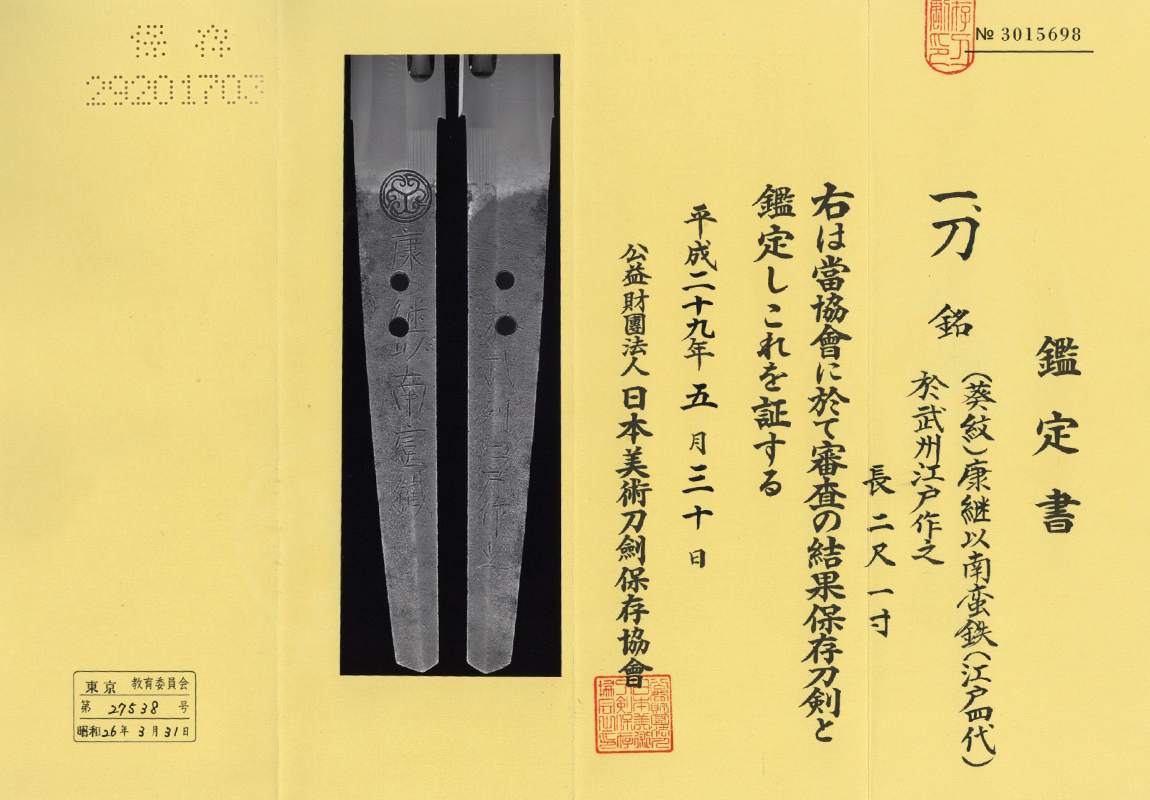 № 3015698
鑑定書
一、刀 銘 (葵紋)康継以南蛮鉄(江戸四代)
於武州江戸作之
長二尺一寸
右は當協會に於て審査の結果保存刀剣と
鑑定しこれを証する
平成二十九年五月三十日
公益財團法人 日本美術刀劍保存協會
康継以南蛮鐵
於武州江戸作之
保存
29201703
東京 教育委員会
第 27538 号
昭和26年3月31日